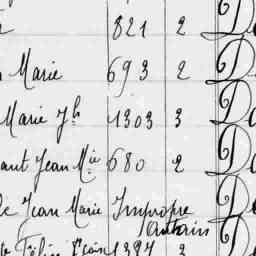 821 2 D
Marie 693 2 D
Marie Jh 1303 3 D
ant Jean Mie 680 2 D
Jean Marie Impropre D
Félix Jean 1387 2 D